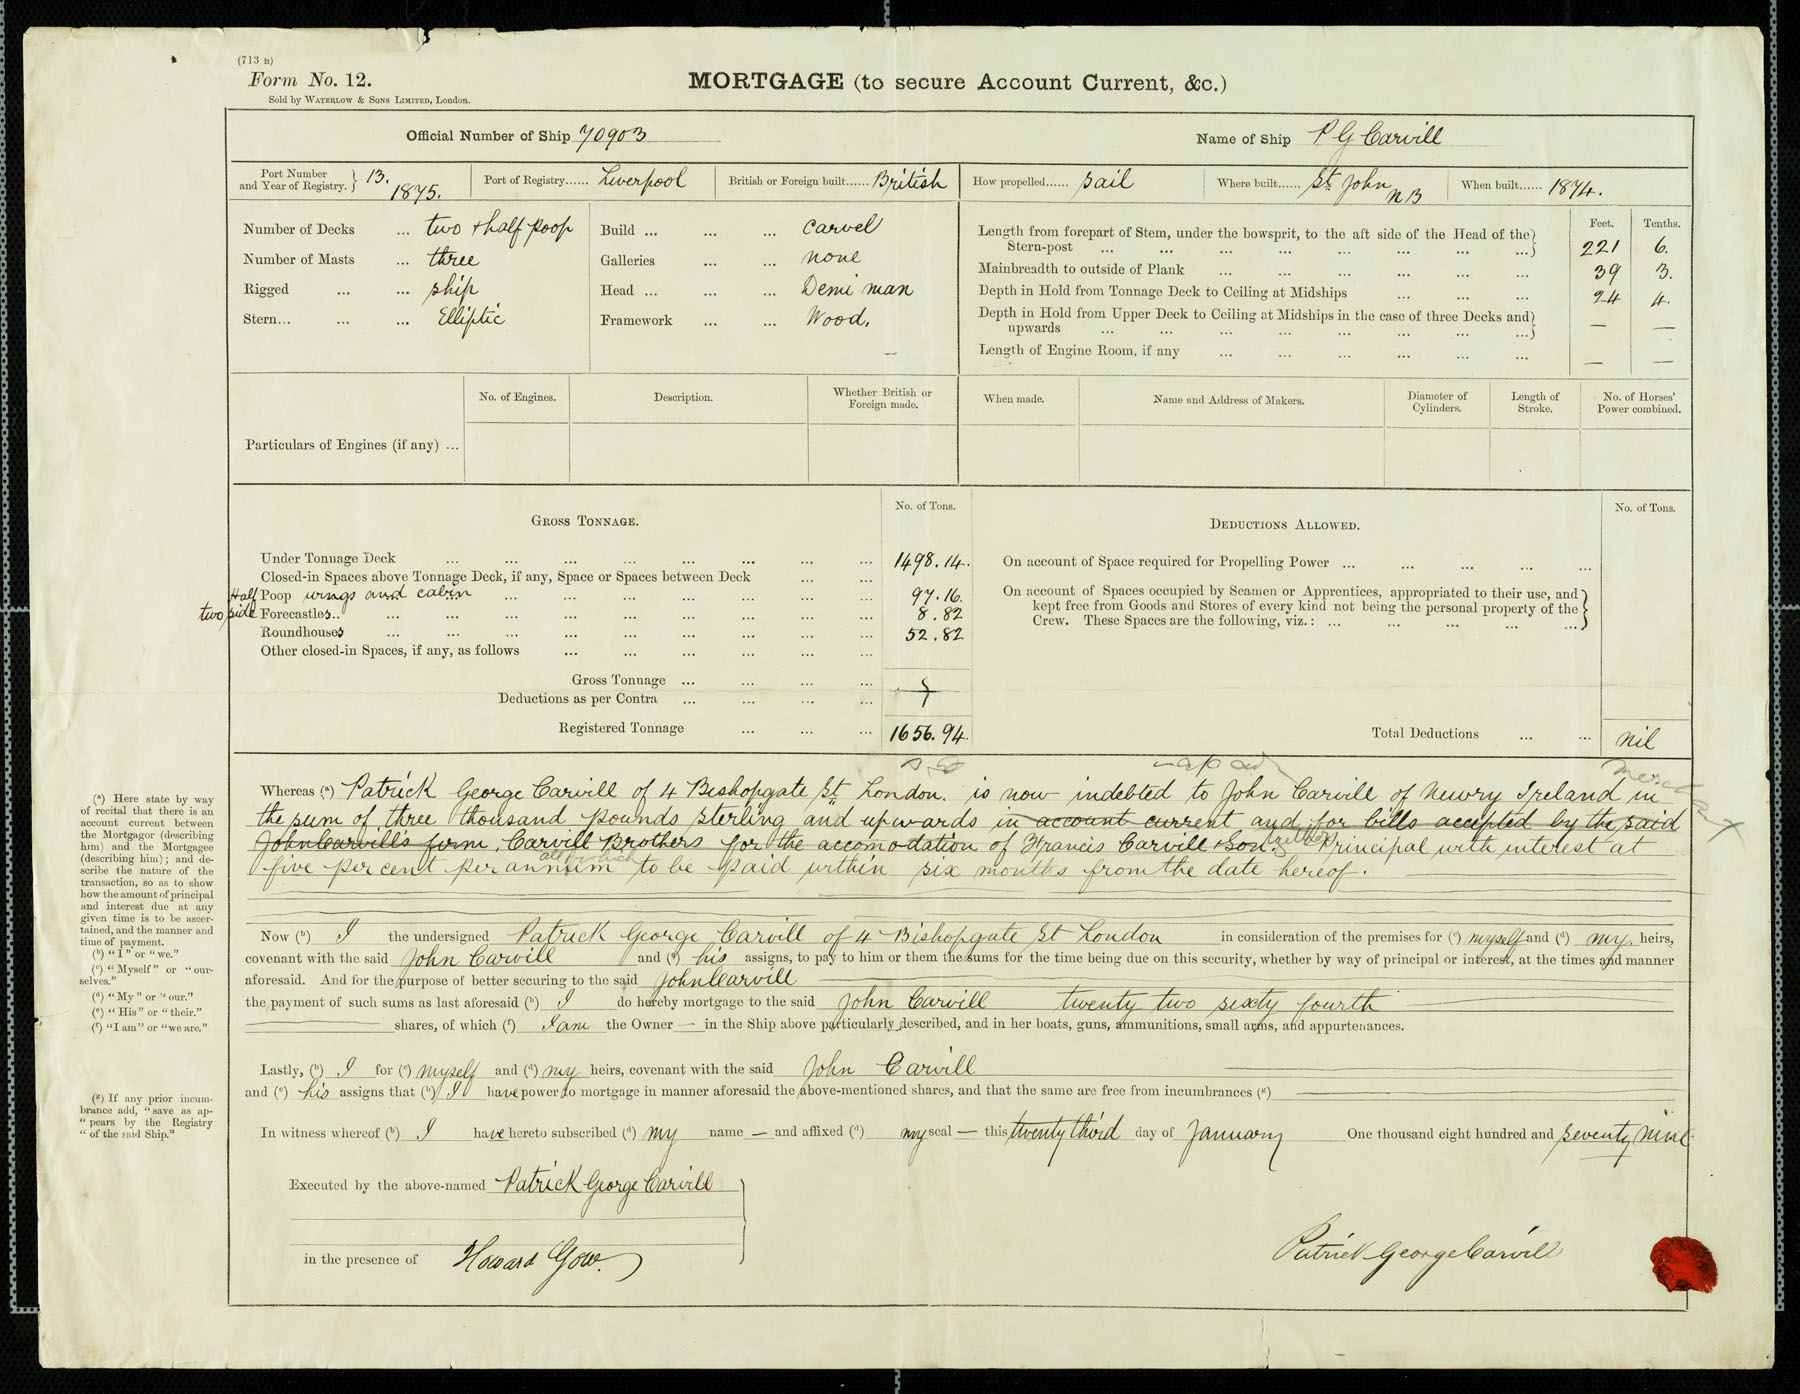 (713 B)
Form No. 12.
Sold by WATERLOW & SONS LIMITED, London.
MORTGAGE (to secure Account Current, &c.)
Official Number of Ship 70903
Name of Ship P G Carvill
Port Number and Year of Registry. } 13. 1875.
Port of Registry...... Liverpool
British or Foreign built...... British
How propelled...... Sail
Where built...... St. John N B
When built...... 1874.
Number of Decks ... two & half poop
Number of Masts ... three
Rigged ... ... ship
Stern... ... ... Elliptic
Build ... ... ... carvel
Galleries ... ... none
Head ... ... ... Demi man
Framework ... ... Wood.
Feet. Tenths.
Length from forepart of Stem, under the bowsprit, to the aft side of the Head of the
Stern-post ... ... ... ... ... ... ... ...} 221 6.
Mainbreadth to outside of Plank ... ... ... ... ... ... 39 3.
Depth in Hold from Tonnage Deck to Ceiling at Midships ... ... ... 24 4.
Depth in Hold from Upper Deck to Ceiling at Midships in the case of three Decks and
upwards ... ... ... ... ... ... ... ...} — —
Length of Engine Room, if any ... ... ... ... ... ... — —
No. of Engines. Description. Whether British or Foreign made. When made. Name and Address of Makers. Diameter of Cylinders. Length of Stroke. No. of Horses' Power combined.
Particulars of Engines (if any) ...
GROSS TONNAGE.
No. of Tons.
Under Tonnage Deck ... ... ... ... ... ... ... ... 1498.14.
Closed-in Spaces above Tonnage Deck, if any, Space or Spaces between Deck ... ...
Half Poop wings and cabin ... ... ... ... ... ... ... 97.16.
two side Forecastles.. ... ... ... ... ... ... ... ... ... 8.82
Roundhouses ... ... ... ... ... ... ... ... ... 52.82
Other closed-in Spaces, if any, as follows ... ... ... ... ... ...
Gross Tonnage ... ... ... ...
Deductions as per Contra ... ... ... ...
Registered Tonnage ... ... ... 1656.94.
DEDUCTIONS ALLOWED.
No. of Tons.
On account of Space required for Propelling Power ... ... ... ... ...
On account of Spaces occupied by Seamen or Apprentices, appropriated to their use, and
kept free from Goods and Stores of every kind not being the personal property of the
Crew. These Spaces are the following, viz.: ... ... ... ... ...}
Total Deductions ... ... nil
merchant
Whereas (a) Patrick George Carvill of 4 Bishopgate St London. is now indebted to John Carvill of Newry Ireland in
the sum of three thousand pounds sterling and upwards in account current and for bills accepted by the said
John Carvill's firm, Carvill Brothers for the accomodation of Francis Carvill & Son. Principal with interest at
five per cent per annum to be paid within six months from the date hereof.
Now (b) I the undersigned Patrick George Carvill of 4 Bishopgate St London in consideration of the premises for (c) myself and (d) my heirs,
covenant with the said John Carvill and (e) his assigns, to pay to him or them the sums for the time being due on this security, whether by way of principal or interest, at the times and manner
aforesaid. And for the purpose of better securing to the said John Carvill
the payment of such sums as last aforesaid (b) I do hereby mortgage to the said John Carvill twenty two sixty fourth
shares, of which (f) I am the Owner — in the Ship above particularly described, and in her boats, guns, ammunitions, small arms, and appurtenances.
Lastly, (b) I for (c) myself and (d) my heirs, covenant with the said John Carvill
and (e) his assigns that (b) I have power to mortgage in manner aforesaid the above-mentioned shares, and that the same are free from incumbrances (g)
In witness whereof (b) I have hereto subscribed (d) my name — and affixed (d) my seal — this twenty third day of January One thousand eight hundred and seventy nine
Executed by the above-named Patrick George Carvill
in the presence of Howard Gow.
Patrick George Carvill
(a) Here state by way
of recital that there is an
account current between
the Mortgagor (describing
him) and the Mortgagee
(describing him); and de-
scribe the nature of the
transaction, so as to show
how the amount of principal
and interest due at any
given time is to be ascer-
tained, and the manner and
time of payment.
(b) "I" or "we."
(c) "Myself" or "our-
selves."
(d) "My" or "our."
(e) "His" or "their."
(f) "I am" or "we are."
(g) If any prior incum-
brance add, "save as ap-
"pears by the Registry
"of the said Ship."